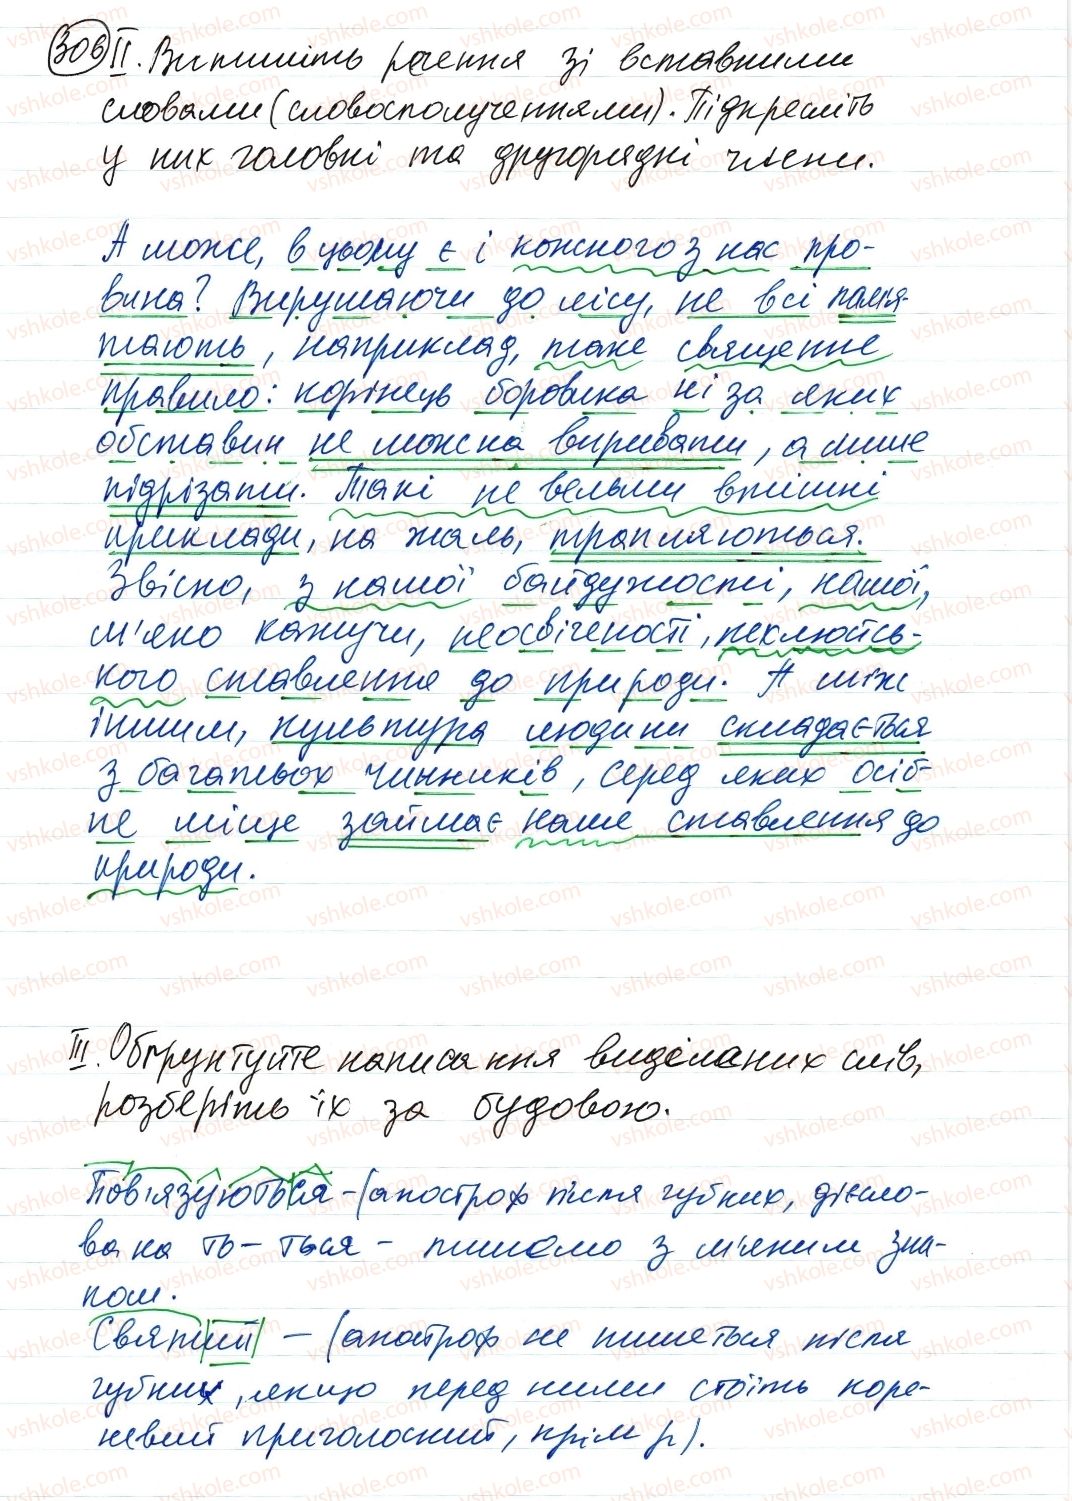 306 II. Випишіть речення зі вставними
словами (словосполученнями). Підкресліть
у них головні та другорядні члени.
А може, в цьому є і кожного з нас про-
вина? Вирушаючи до лісу, не всі пам'я-
тають, наприклад, таке священне
правило: корінець боровика ні за яких
обставин не можна виривати, а лише
підрізати. Такі не вельми втішні
приклади, на жаль, трапляються.
Звісно, з нашої байдужості, нашої,
м'яко кажучи, неосвіченості, неклюйсь-
кого ставлення до природи. А між
іншим, культура людини складається
з багатьох чинників, серед яких осіб-
не місце займає наше ставлення до
природи.
III. Обґрунтуйте написання виділених слів,
розберіть їх за будовою.
Пов'язуються - (апостроф після губних, дієсло-
ва на ть - ться - пишемо з м'яким зна-
ком.
Святий - (апостроф не пишеться після
губних, якщо перед ними стоїть коре-
невий приголосний, крім р).